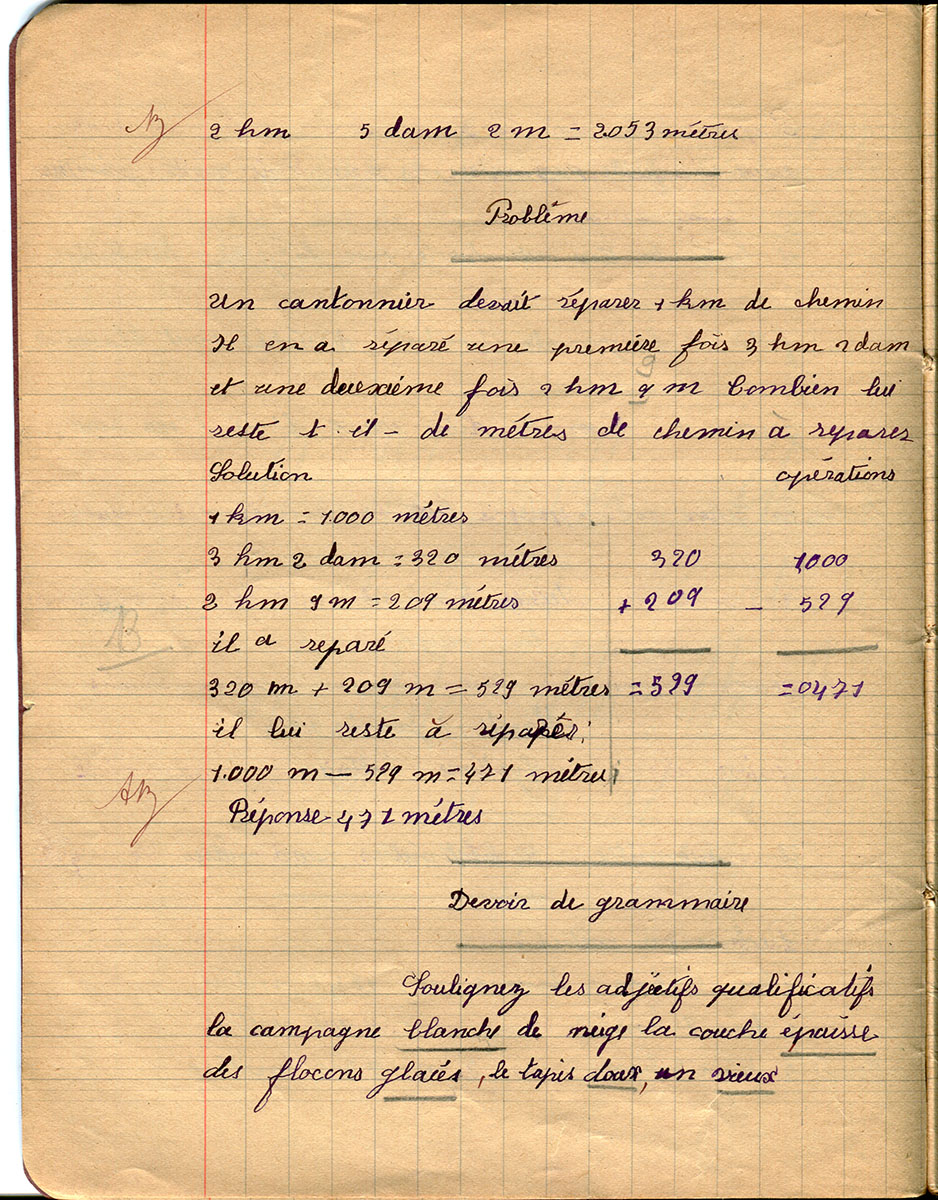 B
2 hm 5 dam 2 m = 2053 métres
Problême
Un cantonnier devait réparer 1 km de chemin
Il en a réparé une première fois 3 hm 2 dam
et une deuxième fois 2 hm 9 m Combien lui
reste t il - de métres de chemin à reparer
Solution opérations
1 km = 1.000 métres
3 hm 2 dam = 320 métres 320 1,000
2 hm 9 m = 209 métres + 209 - 529
B
il a reparé
320 m + 209 m = 529 métres = 529 = 0471
il lui reste à réparér;
1.000 m - 529 m = 471 métres
AB
Réponse 471 métres
Devoir de grammaire
Soulignez les adjectifs qualificatifs
la campagne blanche de neige la couche épaisse
des flocons glacés, le tapis doux, un vieux